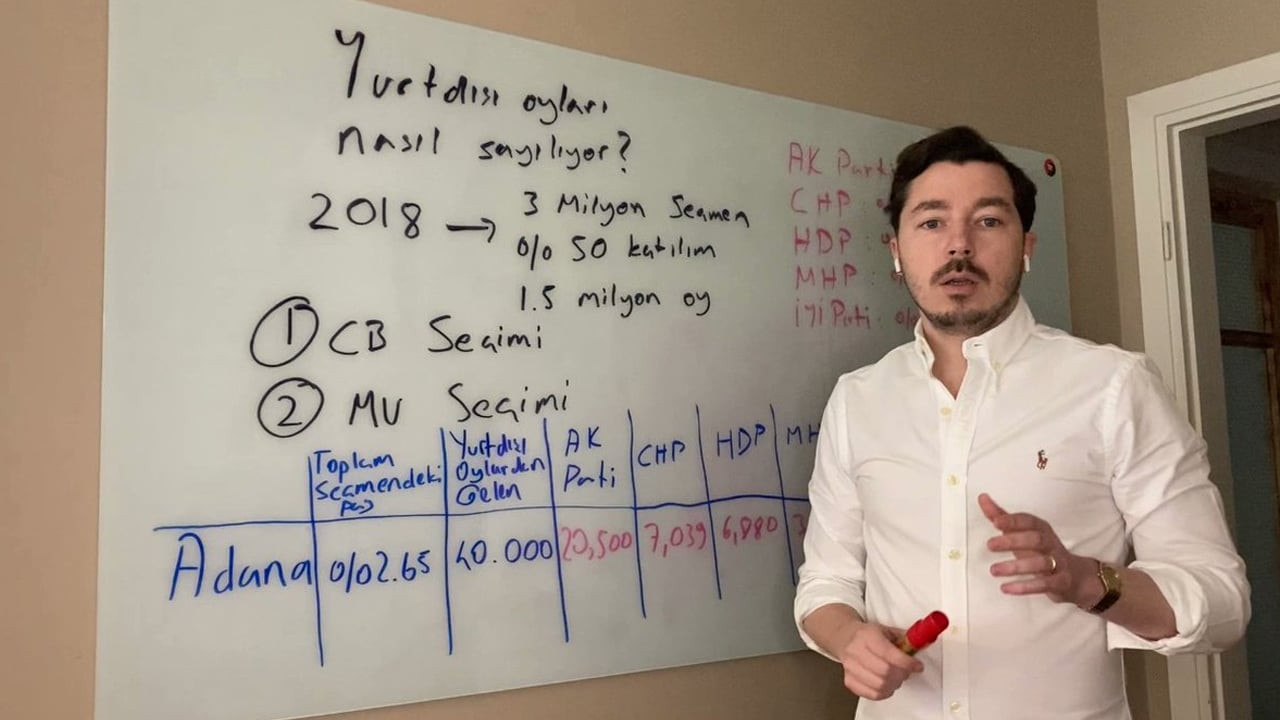 Yurtdısı oyları
nasıl sayılıyor?
2018 → 3 Milyon Seçmen
% 50 katılım
1.5 milyon oy
AK Parti
CHP :
HDP :
MHP :
İYİ Parti : %
① CB Seçimi
② MV Seçimi
Toplam Seçmendeki pay
Yurtdışı Oylardan Gelen
AK Parti
CHP
HDP
Adana
%2.65
40.000
20,500
7,039
6,880